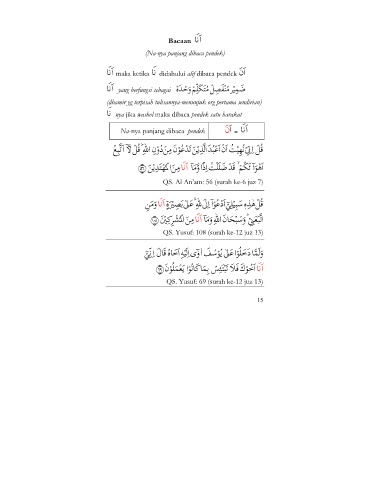 Bacaan اَنَا
(Na-nya panjang dibaca pendek)
اَنَا maka ketika نَا didahului alif dibaca pendek اَنَ
اَنَا yang berfungsi sebagai ضَمِيْر مُنْفَصِلْ مُتَكَلِّمْ وَحْدَهْ
(dhamir yg terpisah tulisannya-menunjuk org pertama sendirian)
نَا nya jika washol maka dibaca pendek satu harakat
Na-nya panjang dibaca pendek اَنَا = اَنَ
قُلْ اِنِّيْ نُهِيْتُ اَنْ اَعْبُدَ الَّذِيْنَ تَدْعُوْنَ مِنْ دُوْنِ اللّٰهِ ۗ قُلْ لَّآ اَتَّبِعُ
اَهْوَاۤءَكُمْۙ قَدْ ضَلَلْتُ اِذًا وَّمَآ اَنَا۠ مِنَ الْمُهْتَدِيْنَ
QS. Al An'am: 56 (surah ke-6 juz 7)
قُلْ هٰذِهٖ سَبِيْلِيْٓ اَدْعُوْٓا اِلَى اللّٰهِ ۗ عَلٰى بَصِيْرَةٍ اَنَا۠ وَمَنِ
اتَّبَعَنِيْ ۗ وَسُبْحٰنَ اللّٰهِ وَمَآ اَنَا۠ مِنَ الْمُشْرِكِيْنَ
QS. Yusuf: 108 (surah ke-12 juz 13)
وَلَمَّا دَخَلُوْا عَلٰى يُوْسُفَ اٰوٰٓى اِلَيْهِ اَخَاهُ قَالَ اِنِّيْٓ
اَنَا۠ اَخُوْكَ فَلَا تَبْتَىِٕسْ بِمَا كَانُوْا يَعْمَلُوْنَ
QS. Yusuf: 69 (surah ke-12 juz 13)
15